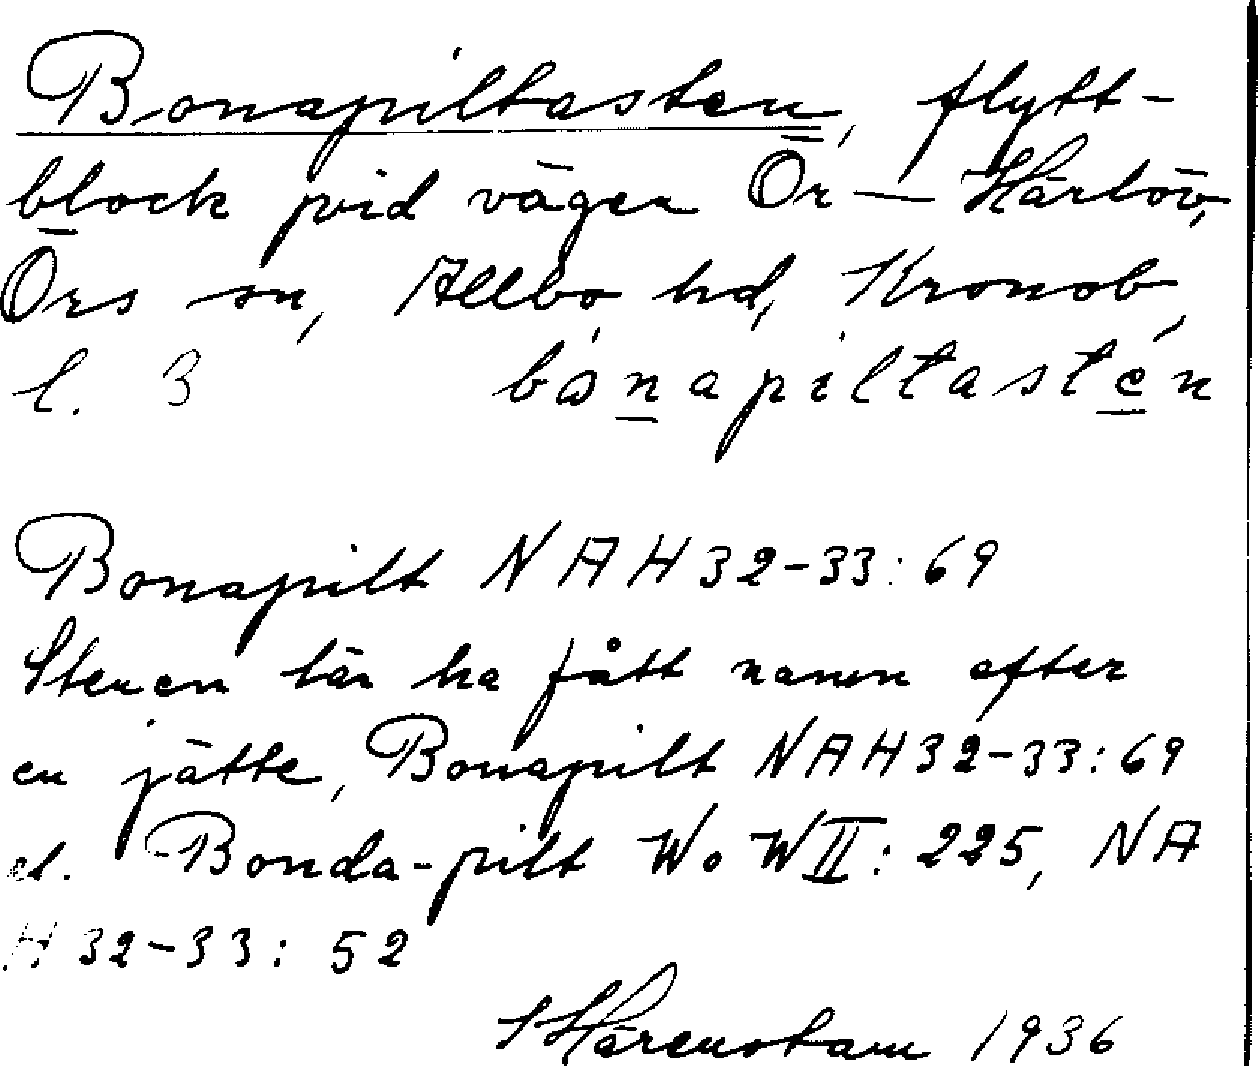 Bonapiltasten, flytt-
block vid vägen Ör — Härlöv,
Örs sn, Allbo hd, Kronob.
l. 3 bónapiltastén
Bonapilt NAH 32-33: 69
Stenen lär ha fått namn efter
en jätte, Bonapilt NAH 32-33: 69
el. Bonda-pilt WoW II: 225, NA
H 32-33: 52
S Härenstam 1936